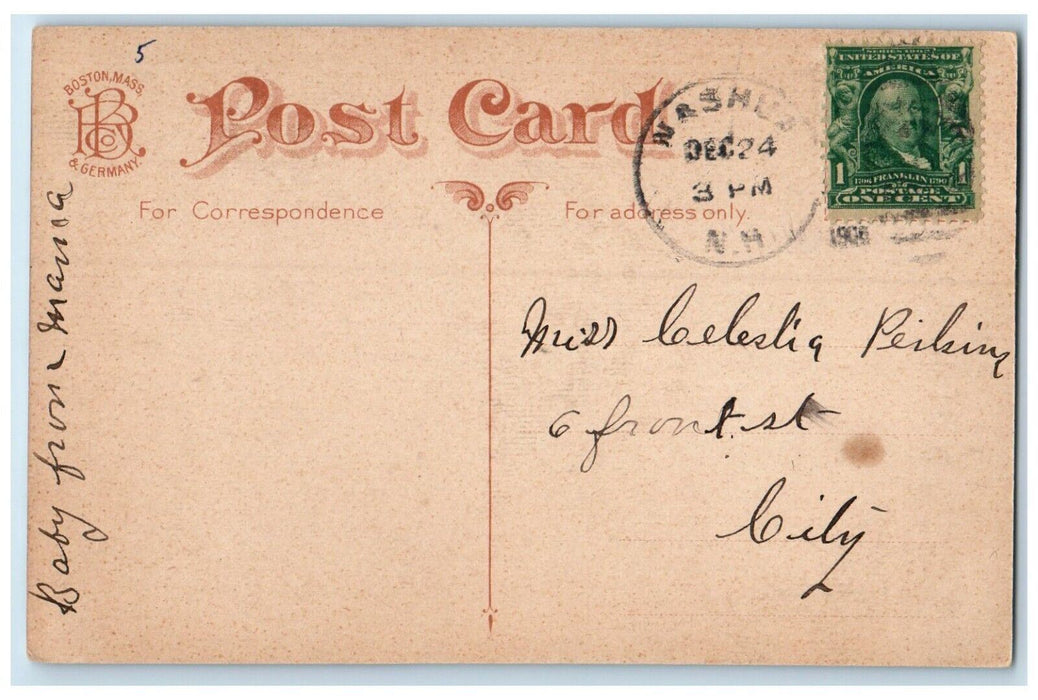 5
BOSTON, MASS.
BR Co
& GERMANY.
Post Card
For Correspondence
For address only.
NASHUA
DEC 24
3 PM
N.H.
1908
SERIES 1902
UNITED STATES OF
AMERICA
1 1706 FRANKLIN 1790 1
POSTAGE
ONE CENT
Miss Celestia Perkins
6 front. st
City
Baby from Mama